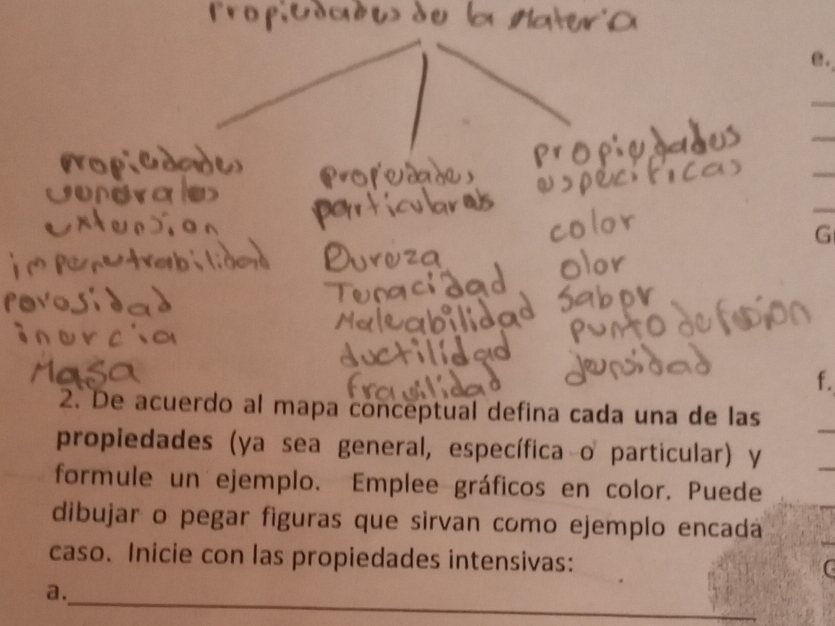 Propiedades de la Materia
propiedades generales
extension
impenetrabilidad
porosidad
inercia
Masa
propiedades particulares
Dureza
Tenacidad
Maleabilidad
ductilidad
fragilidad
propiedades especificas
color
olor
Sabor
punto de fusion
densidad
2. De acuerdo al mapa conceptual defina cada una de las
propiedades (ya sea general, específica o particular) y
formule un ejemplo. Emplee gráficos en color. Puede
dibujar o pegar figuras que sirvan como ejemplo encada
caso. Inicie con las propiedades intensivas:
a.
e.
G
f.